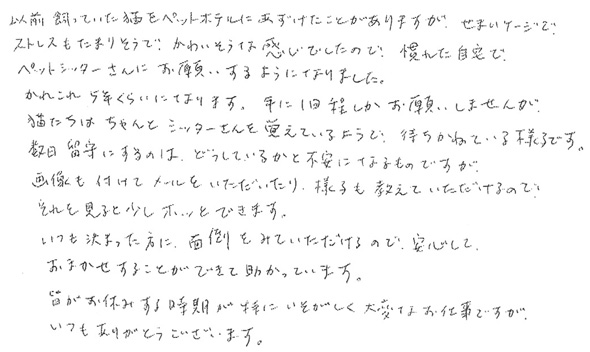 以前 飼っていた猫をペットホテルにあずけたことがありますが、せまいケージで、
ストレスもたまりそうで、かわいそうな感じでしたので、慣れた自宅で、
ペットシッターさんにお願いするようになりました。
かれこれ5年くらいになります。年に1回程しかお願いしませんが、
猫たちはちゃんとシッターさんを覚えているようで、待ちかねている様子です。
数日留守にするのは、どうしているかと不安になるものですが、
画像も付けてメールをいただいたり、様子も教えていただけるので、
それを見ると少しホッとできます。
いつも決まった方に、面倒をみていただけるので、安心して、
おまかせすることができて助かっています。
皆がお休みする時期が特にいそがしく大変なお仕事ですが、
いつもありがとうございます。